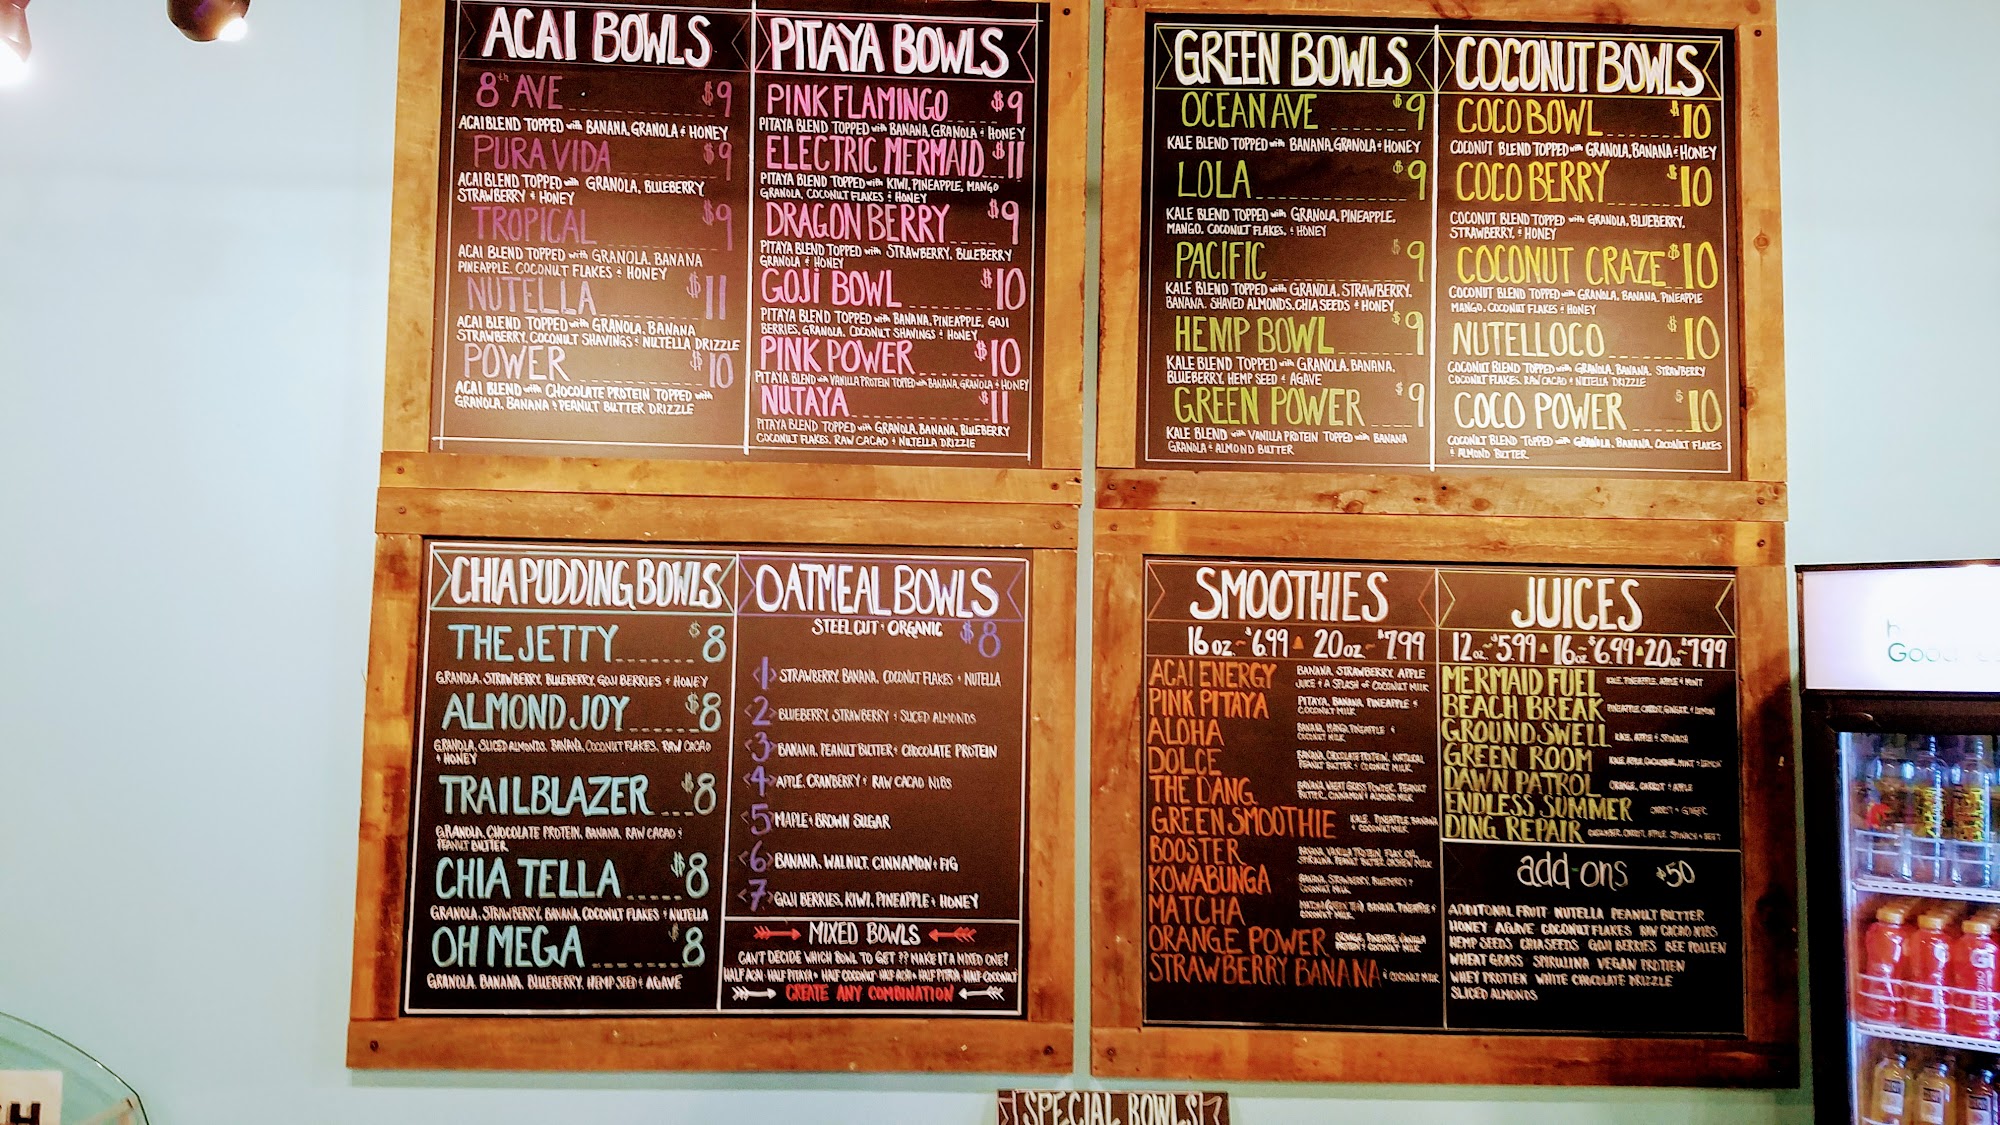 ACAI BOWLS
8th AVE $9
ACAI BLEND TOPPED with BANANA, GRANOLA & HONEY
PURA VIDA $9
ACAI BLEND TOPPED with GRANOLA, BLUEBERRY,
STRAWBERRY & HONEY
TROPICAL $9
ACAI BLEND TOPPED with GRANOLA, BANANA
PINEAPPLE, COCONUT FLAKES & HONEY
NUTELLA $11
ACAI BLEND TOPPED with GRANOLA, BANANA
STRAWBERRY, COCONUT SHAVINGS & NUTELLA DRIZZLE
POWER $10
ACAI BLEND with CHOCOLATE PROTEIN TOPPED with
GRANOLA, BANANA & PEANUT BUTTER DRIZZLE
PITAYA BOWLS
PINK FLAMINGO $9
PITAYA BLEND TOPPED with BANANA, GRANOLA & HONEY
ELECTRIC MERMAID $11
PITAYA BLEND TOPPED with KIWI, PINEAPPLE, MANGO
GRANOLA, COCONUT FLAKES & HONEY
DRAGON BERRY $9
PITAYA BLEND TOPPED with STRAWBERRY, BLUEBERRY
GRANOLA & HONEY
GOJI BOWL $10
PITAYA BLEND TOPPED with BANANA, PINEAPPLE, GOJI
BERRIES, GRANOLA, COCONUT SHAVINGS & HONEY
PINK POWER $10
PITAYA BLEND with VANILLA PROTEIN TOPPED with BANANA, GRANOLA & HONEY
NUTAYA $11
PITAYA BLEND TOPPED with GRANOLA, BANANA, BLUEBERRY
COCONUT FLAKES, RAW CACAO & NUTELLA DRIZZLE
GREEN BOWLS
OCEAN AVE $9
KALE BLEND TOPPED with BANANA, GRANOLA & HONEY
LOLA $9
KALE BLEND TOPPED with GRANOLA, PINEAPPLE,
MANGO, COCONUT FLAKES, & HONEY
PACIFIC $9
KALE BLEND TOPPED with GRANOLA, STRAWBERRY,
BANANA, SHAVED ALMONDS, CHIA SEEDS & HONEY
HEMP BOWL $9
KALE BLEND TOPPED with GRANOLA, BANANA,
BLUEBERRY, HEMP SEED & AGAVE
GREEN POWER $9
KALE BLEND with VANILLA PROTEIN TOPPED with BANANA
GRANOLA & ALMOND BUTTER
COCONUT BOWLS
COCO BOWL $10
COCONUT BLEND TOPPED with GRANOLA, BANANA & HONEY
COCO BERRY $10
COCONUT BLEND TOPPED with GRANOLA, BLUEBERRY,
STRAWBERRY, & HONEY
COCONUT CRAZE $10
COCONUT BLEND TOPPED with GRANOLA, BANANA, PINEAPPLE
MANGO, COCONUT FLAKES & HONEY
NUTELLOCO $10
COCONUT BLEND TOPPED with GRANOLA, BANANA, STRAWBERRY
COCONUT FLAKES, RAW CACAO & NUTELLA DRIZZLE
COCO POWER $10
COCONUT BLEND TOPPED with GRANOLA, BANANA, COCONUT FLAKES
& ALMOND BUTTER
CHIA PUDDING BOWLS
THE JETTY $8
GRANOLA, STRAWBERRY, BLUEBERRY, GOJI BERRIES & HONEY
ALMOND JOY $8
GRANOLA, SLICED ALMONDS, BANANA, COCONUT FLAKES, RAW CACAO
& HONEY
TRAILBLAZER $8
GRANOLA, CHOCOLATE PROTEIN, BANANA, RAW CACAO &
PEANUT BUTTER
CHIA TELLA $8
GRANOLA, STRAWBERRY, BANANA, COCONUT FLAKES & NUTELLA
OH MEGA $8
GRANOLA, BANANA, BLUEBERRY, HEMP SEED & AGAVE
OATMEAL BOWLS
STEEL CUT & ORGANIC $8
<1> STRAWBERRY, BANANA, COCONUT FLAKES & NUTELLA
<2> BLUEBERRY, STRAWBERRY & SLICED ALMONDS
<3> BANANA, PEANUT BUTTER & CHOCOLATE PROTEIN
<4> APPLE, CRANBERRY & RAW CACAO NIBS
<5> MAPLE & BROWN SUGAR
<6> BANANA, WALNUT, CINNAMON & FIG
<7> GOJI BERRIES, KIWI, PINEAPPLE & HONEY
MIXED BOWLS
CAN'T DECIDE WHICH BOWL TO GET?? MAKE IT A MIXED ONE!
HALF ACAI - HALF PITAYA • HALF COCONUT - HALF ACAI • HALF PITAYA - HALF COCONUT
CREATE ANY COMBINATION
SMOOTHIES
16oz - $6.99 20oz - $7.99
ACAI ENERGY BANANA, STRAWBERRY, APPLE
JUICE & A SPLASH of COCONUT MILK
PINK PITAYA PITAYA, BANANA, PINEAPPLE &
COCONUT MILK
ALOHA BANANA, MANGO, PINEAPPLE &
COCONUT MILK
DOLCE BANANA, CHOCOLATE PROTEIN, NATURAL
PEANUT BUTTER & COCONUT MILK
THE DANG BANANA, WHEAT GRASS POWDER, PEANUT
BUTTER, CINNAMON & ALMOND MILK
GREEN SMOOTHIE KALE, PINEAPPLE, BANANA
& COCONUT MILK
BOOSTER BANANA, VANILLA PROTEIN, FLAX OIL,
SPIRULINA, PEANUT BUTTER, CASHEW MILK
KOWABUNGA BANANA, STRAWBERRY, BLUEBERRY &
COCONUT MILK
MATCHA MATCHA (GREEN TEA), BANANA, PINEAPPLE &
COCONUT MILK
ORANGE POWER ORANGE, PINEAPPLE, VANILLA
PROTEIN & COCONUT MILK
STRAWBERRY BANANA & COCONUT MILK
JUICES
12oz - $5.99 16oz - $6.99 20oz - $7.99
MERMAID FUEL KALE, PINEAPPLE, APPLE & MINT
BEACH BREAK PINEAPPLE, CARROT, GINGER & LEMON
GROUND SWELL KALE, APPLE & SPINACH
GREEN ROOM KALE, APPLE, CUCUMBER, MINT & LEMON
DAWN PATROL ORANGE, CARROT & APPLE
ENDLESS SUMMER CARROT & GINGER
DING REPAIR CUCUMBER, CARROT, APPLE, SPINACH & BEET
add-ons $.50
ADDITONAL FRUIT NUTELLA PEANUT BUTTER
HONEY AGAVE COCONUT FLAKES RAW CACAO NIBS
HEMP SEEDS CHIA SEEDS GOJI BERRIES BEE POLLEN
WHEAT GRASS SPIRULINA VEGAN PROTIEN
WHEY PROTIEN WHITE CHOCOLATE DRIZZLE
SLICED ALMONDS
SPECIAL BOWLS